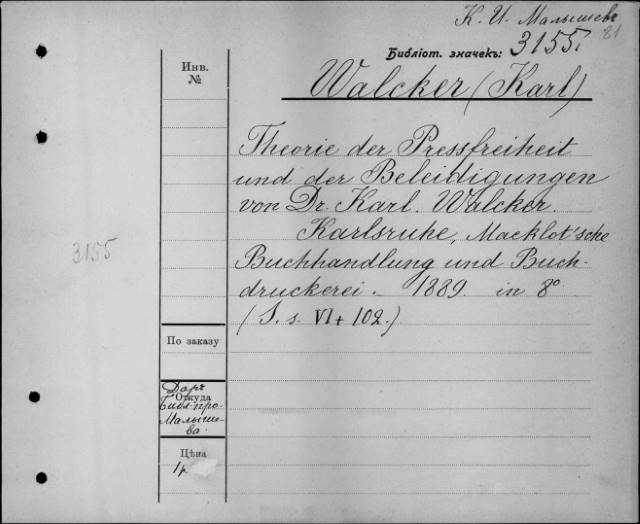 К. И. Малышевъ
81
Библіот. значекъ: 3155.
Инв.
№
Walcker (Karl)
Theorie der Pressfreiheit
und der Beleidigungen
von Dr. Karl. Walcker.
Karlsruhe, Macklot'sche
3155
Buchhandlung und Buch-
druckerei. - 1889. in 8°
(S. s. VI + 102.)
По заказу
Даръ
Откуда
Библ. про.
Малыше-
ва.
Цѣна
1р